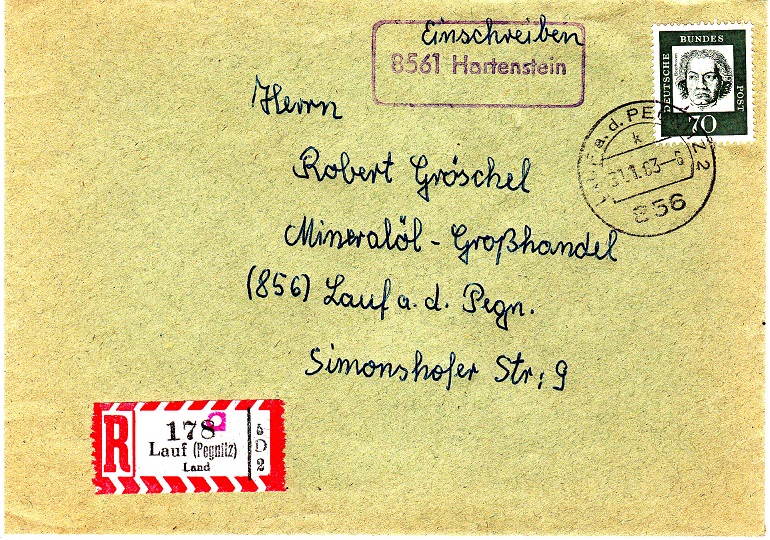 Einschreiben
8561 Hartenstein
DEUTSCHE BUNDES POST
70
LAUF a. d. PEGNITZ 2
k
31.1.63-6
856
Herrn
Robert Gröschel
Mineralöl - Großhandel
(856) Lauf a. d. Pegn.
Simonshofer Str. 9
R
178
Lauf (Pegnitz)
Land
D
2